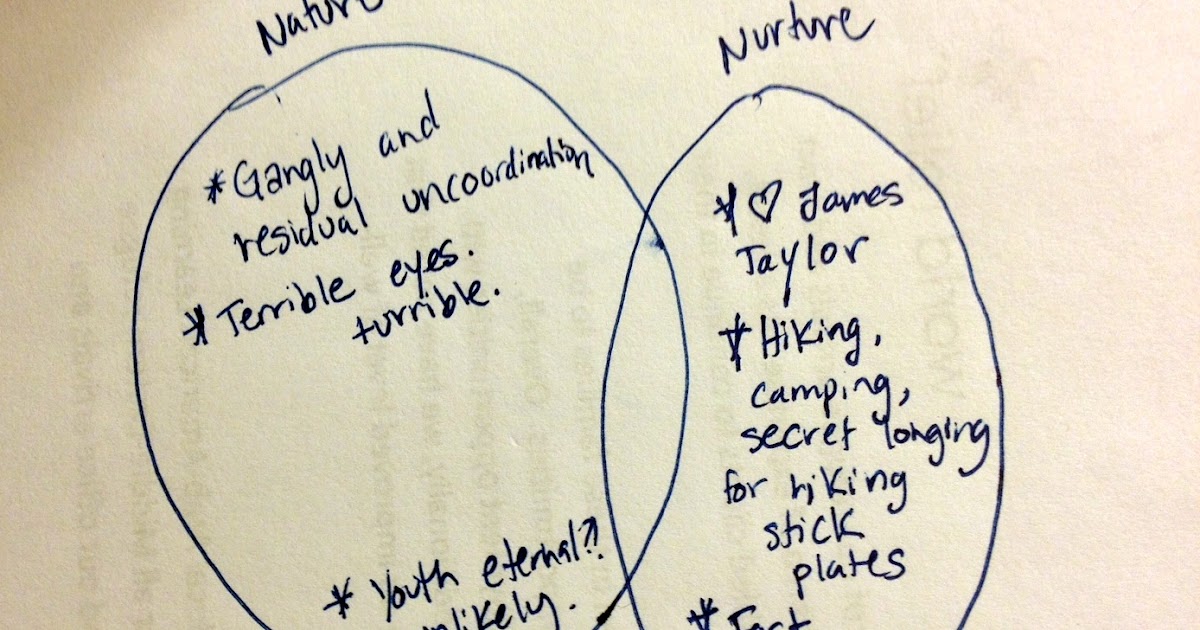 Nature
*Gangly and
residual uncoordination
*Terrible eyes.
turrible.
*Youth eternal?!
unlikely.
Nurture
*♡ James
Taylor
*Hiking,
camping,
secret longing
for hiking
stick
plates
*